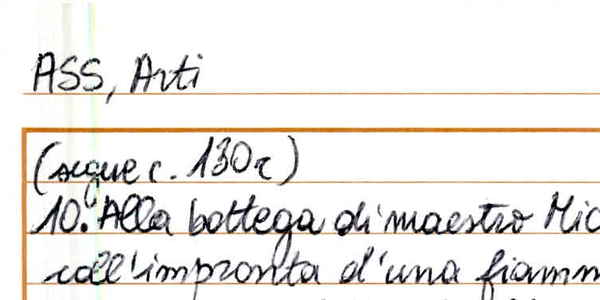 ASS, Arti
(segue c. 130r)
10. Alla bottega di maestro Mic
coll'impronta d'una fiamm